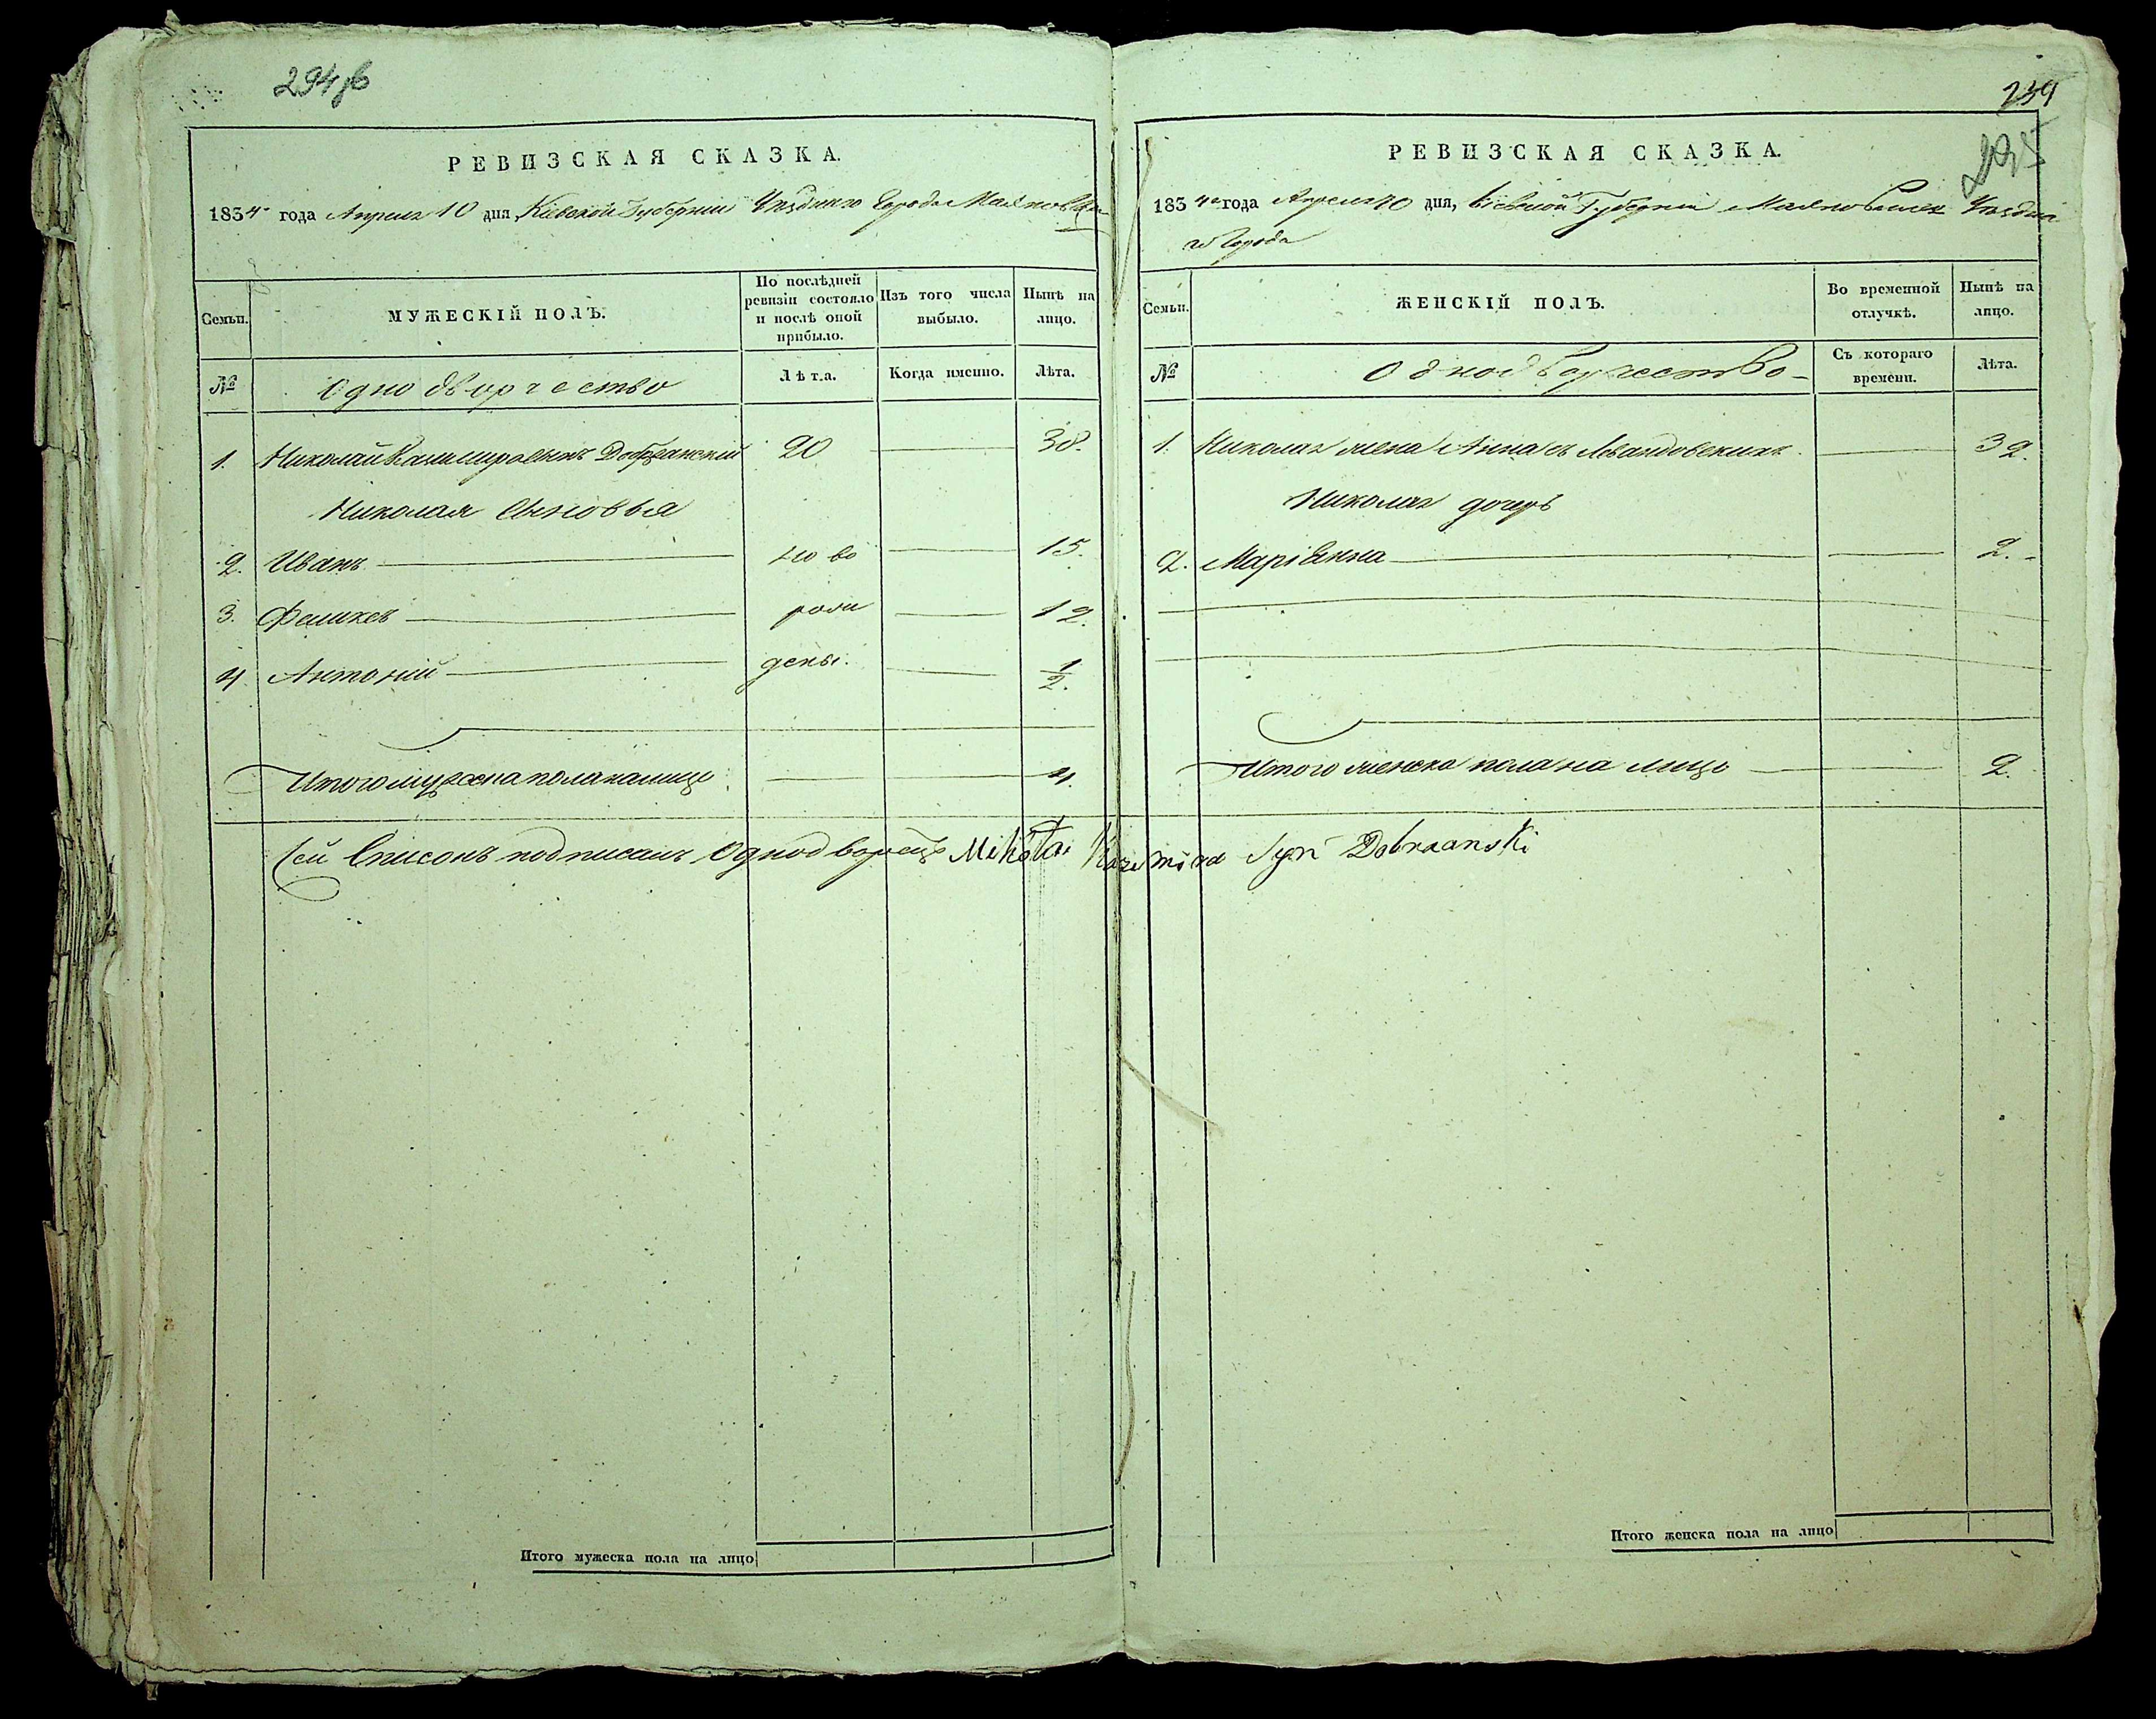 294 об
РЕВИЗСКАЯ СКАЗКА.
1834 года Апреля 10 дня, Кіевской Губерніи Уѣзднаго Города Махновки
Семьи.
МУЖЕСКІЙ ПОЛЪ.
По послѣдней ревизіи состояло и послѣ оной прибыло.
Изъ того числа выбыло.
Нынѣ на лицо.
№
Однодворчество
Лѣта.
Когда именно.
Лѣта.
1. Николай Казимировъ сынъ Добржанскій 20 38.
Николая Сыновья
2. Иванъ ново 15.
3. Феликсъ рож 12.
4 Антоній дены. 1/2.
Итого мужеска пола на лицо 4.
Сей Списокъ подписалъ Однодворецъ Mikołai Kazimira Syn Dobrzanski
Итого мужеска пола на лицо
239
295
РЕВИЗСКАЯ СКАЗКА.
1834го года Апреля 10 дня, Кіевской Губерніи Махновки Уѣздна
го Города
Семьи.
ЖЕНСКІЙ ПОЛЪ.
Во временной отлучкѣ.
Нынѣ на лицо.
№
Однодворчество
Съ котораго времени.
Лѣта.
1. Николая жена Анна съ Левандовскихъ 32.
Николая дочерь
2. Маріянна 2.
Итого женска пола на лицо 2.
Итого женска пола на лицо